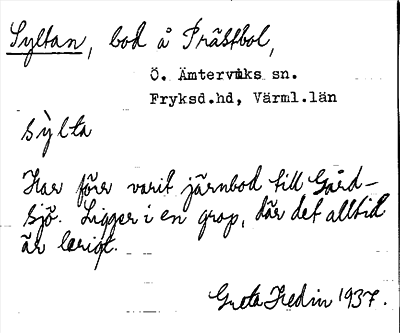 Syltan, bod å Prästbol,
Ö. Ämterviks sn.
Fryksd.hd, Värml.län
sỳlta
Har förr varit järnbod till Gård-
sjö. Ligger i en grop, där det alltid
är lerigt.
Greta Hedin 1937.